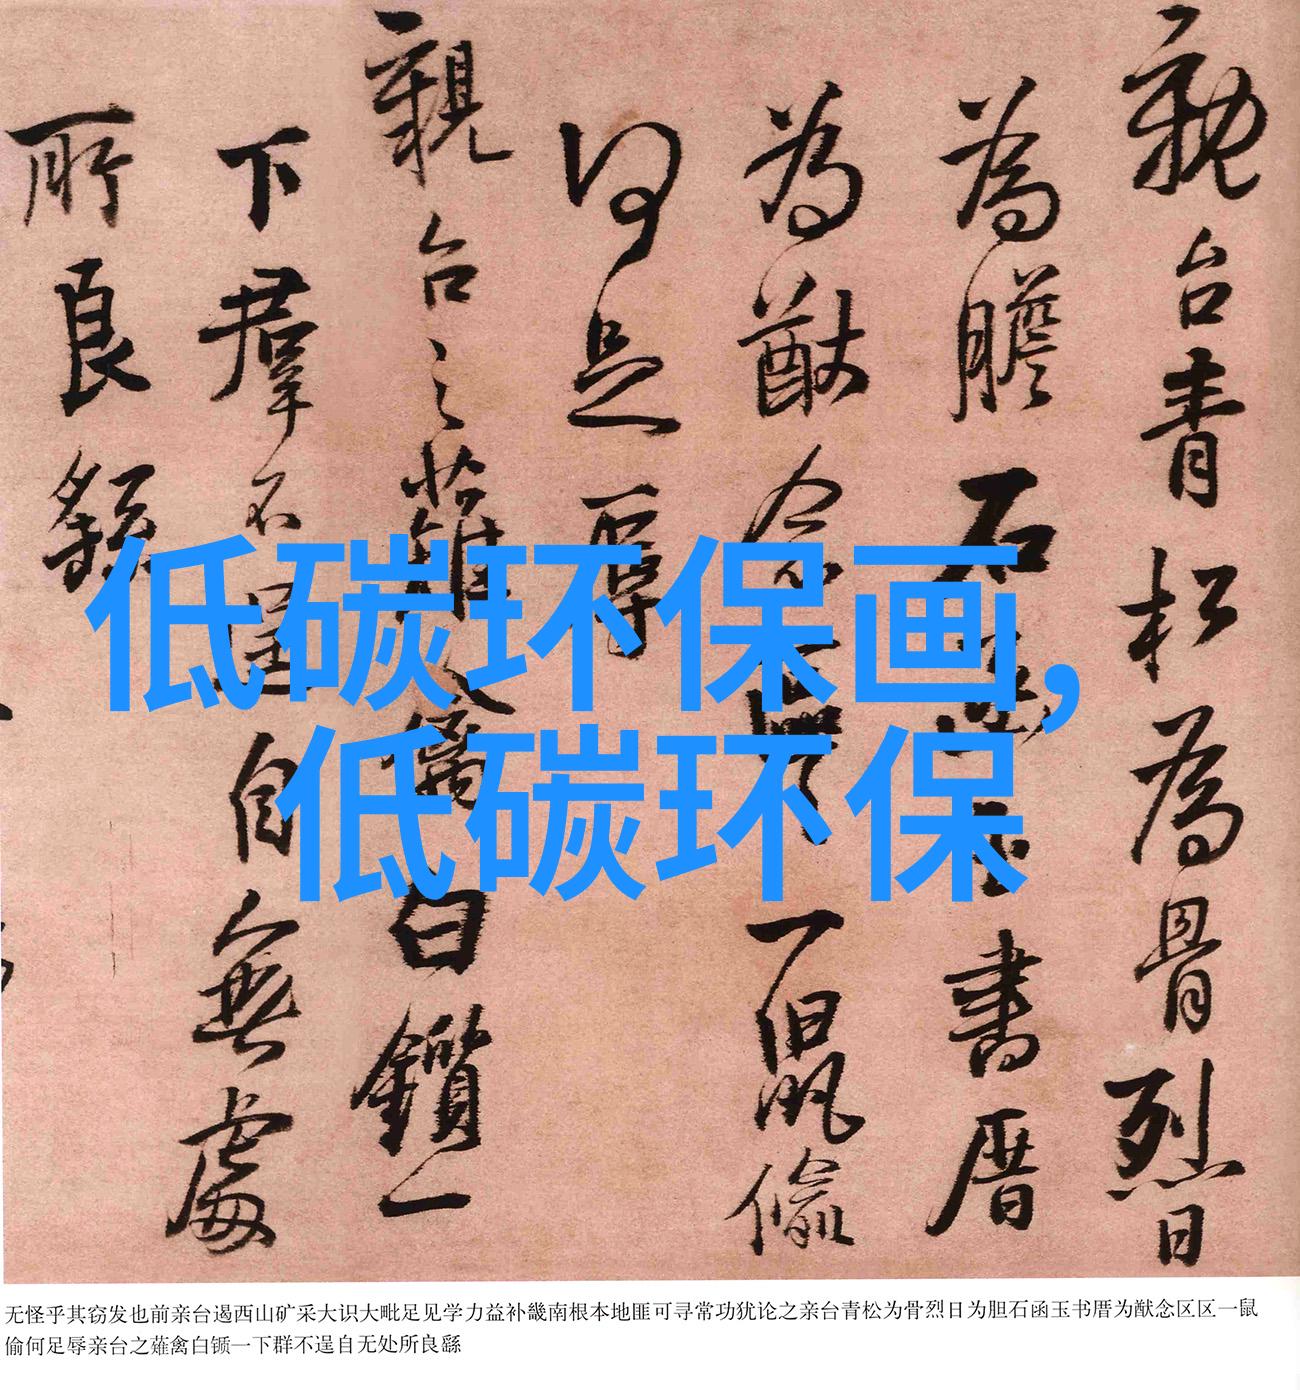 親台青松為骨烈日
為膽石函玉書厝
為猷念區區一鼠偷
何足辱
親台之薙禽白鑕一
下羣不逞自無處
所良繇
低碳环保画,
低碳环保
无怪乎其窃发也前亲台遏西山矿采大识大毗足见学力益补畿南根本地匪可寻常功犹论之亲台青松为骨烈日为胆石函玉书厝为猷念区区一鼠
偷何足辱亲台之薙禽白锧一下群不逞自无处所良繇